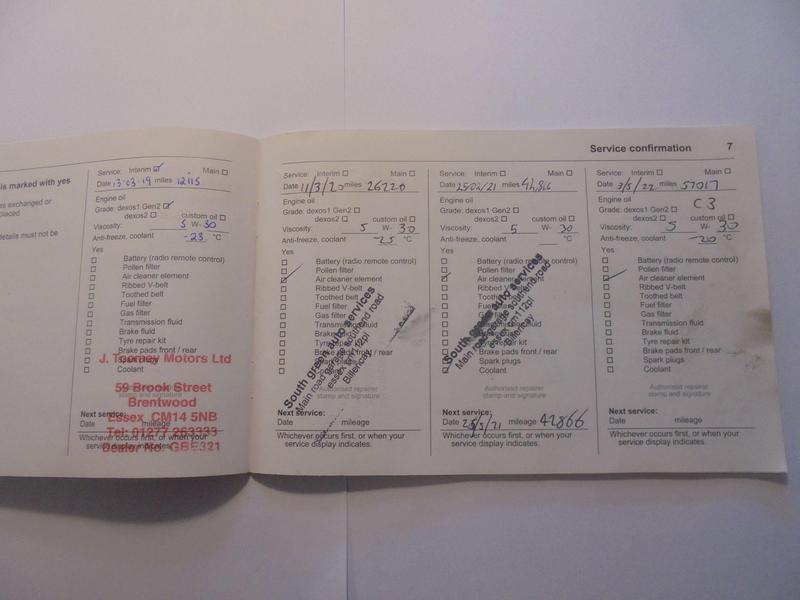 Service confirmation 7
is marked with yes
es exchanged or
placed
details must not be
Service: Interim ☑ Main ☐
Date 13·03·19 miles 12115
Engine oil
Grade: dexos1 Gen2 ☑
dexos2 ☐ custom oil ☐
Viscosity: 5 W- 30
Anti-freeze, coolant -23 °C
Yes
☐ Battery (radio remote control)
☐ Pollen filter
☐ Air cleaner element
☐ Ribbed V-belt
☐ Toothed belt
☐ Fuel filter
☐ Gas filter
☐ Transmission fluid
☐ Brake fluid
☐ Tyre repair kit
☐ Brake pads front / rear
☐ Spark plugs
☐ Coolant
J. Toomey Motors Ltd
Authorised repairer
stamp and signature
59 Brook Street
Brentwood
Essex CM14 5NB
Tel: 01277 263333
Dealer No: GB5321
Next service:
Date mileage
Whichever occurs first, or when your
service display indicates.
Service: Interim ☐ Main ☐
Date 11/3/20 miles 26220
Engine oil
Grade: dexos1 Gen2 ☐
dexos2 ☐ custom oil ☐
Viscosity: 5 W- 30
Anti-freeze, coolant -25 °C
Yes
☐ Battery (radio remote control)
☐ Pollen filter
☑ Air cleaner element
☐ Ribbed V-belt
☐ Toothed belt
☐ Fuel filter
☐ Gas filter
☐ Transmission fluid
☐ Brake fluid
☐ Tyre repair kit
☐ Brake pads front / rear
☐ Spark plugs
☐ Coolant
South green auto services
Main road southend road
essex
Billericay
Authorised repairer
stamp and signature
Next service:
Date mileage
Whichever occurs first, or when your
service display indicates.
Service: Interim ☐ Main ☐
Date 25/02/21 miles 42,866
Engine oil
Grade: dexos1 Gen2 ☐
dexos2 ☐ custom oil ☐
Viscosity: 5 W- 30
Anti-freeze, coolant °C
Yes
☐ Battery (radio remote control)
☐ Pollen filter
☑ Air cleaner element
☐ Ribbed V-belt
☐ Toothed belt
☐ Fuel filter
☐ Gas filter
☐ Transmission fluid
☐ Brake fluid
☐ Tyre repair kit
☐ Brake pads front / rear
☐ Spark plugs
☐ Coolant
South green auto services
Main road southend road
essex cm112pl
Billericay
Authorised repairer
stamp and signature
Next service:
Date mileage 42866
Whichever occurs first, or when your
service display indicates.
Service: Interim ☐ Main ☐
Date 3/5/22 miles 57017
Engine oil C3
Grade: dexos1 Gen2 ☐
dexos2 ☐ custom oil ☐
Viscosity: 5 W- 30
Anti-freeze, coolant -20 °C
Yes
☐ Battery (radio remote control)
☐ Pollen filter
☑ Air cleaner element
☐ Ribbed V-belt
☐ Toothed belt
☐ Fuel filter
☐ Gas filter
☐ Transmission fluid
☐ Brake fluid
☐ Tyre repair kit
☐ Brake pads front / rear
☐ Spark plugs
☐ Coolant
Authorised repairer
stamp and signature
Next service:
Date mileage
Whichever occurs first, or when your
service display indicates.